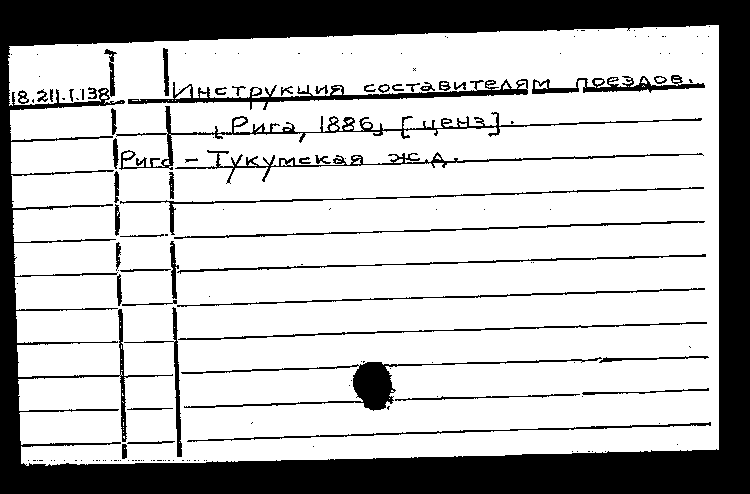 18.211.1.138 Инструкция составителям поездов.
[Рига, 1886] [ценз].
Рига - Тукумская ж.д.